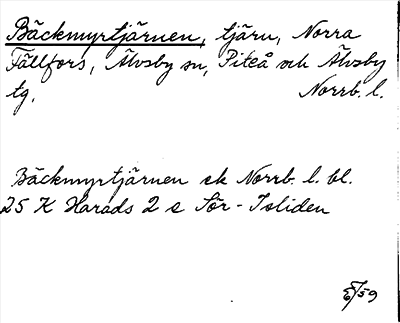 Bäckmyrtjärnen, tjärn, Norra
Fällfors, Älvsby sn, Piteå och Älvsby
tg, Norrb. l.
Bäckmyrtjärnen ek Norrb. l. bl.
25 K Harads 2 e Sör-Isliden
/59